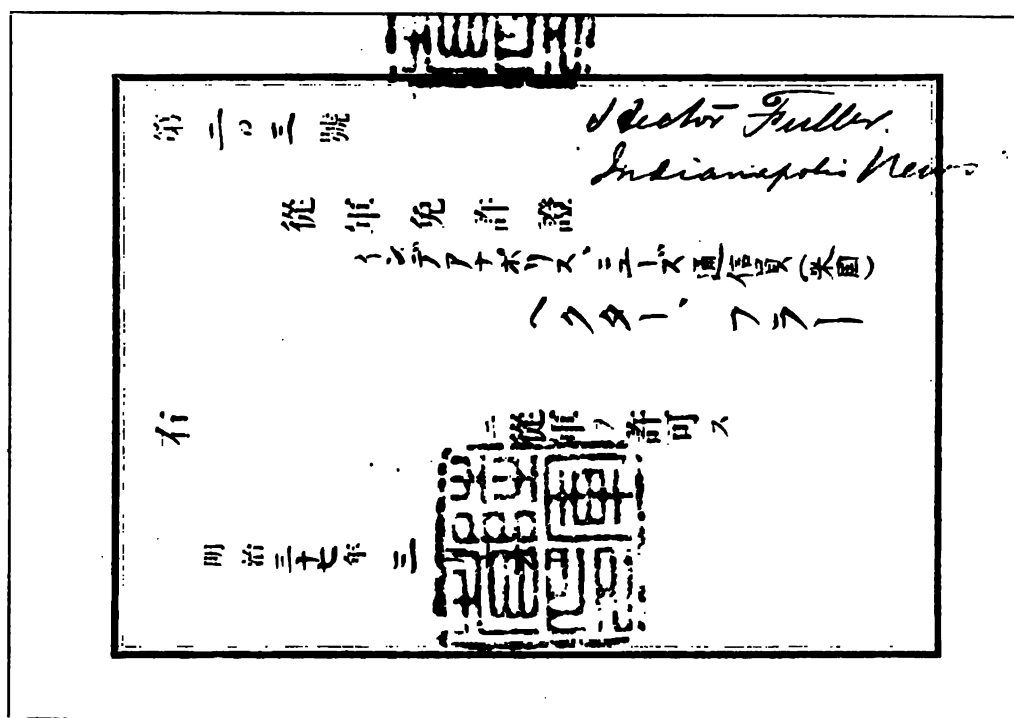 Hector Fuller.
Indianapolis News
第二〇三號
從軍免許證
インデアナポリス、ニューズ通信員(米國)
ヘクター、フラー
右 從軍ヲ許可ス
明治三十七年三